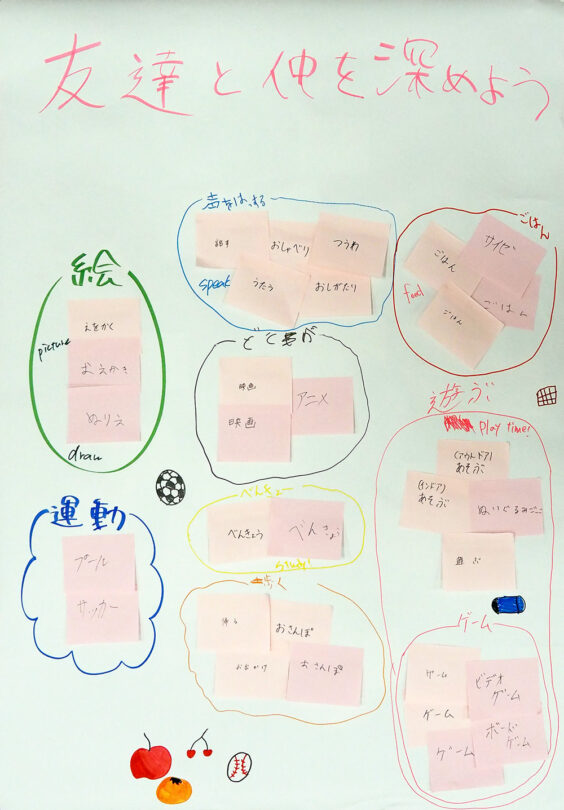 友達と仲を深めよう
声をはっする
話す
おしゃべり
つうわ
speak
うたう
おしがたり
ごはん
ごはん
サイゼ
food
ごはん
ごはん
絵
えをかく
picture
おえかき
ぬりえ
draw
どくが
映画
映画
アニメ
遊ぶ
Play time!
(アウトドア)
あそぶ
(インドア)
あそぶ
ぬいぐるみごっこ
遊ぶ
べんきょー
べんきょう
べんきょう
study
運動
プール
サッカー
歩く
帰る
おさんぽ
おでかけ
おさんぽ
ゲーム
ゲーム
ビデオ
ゲーム
ゲーム
ボード
ゲーム
ゲーム